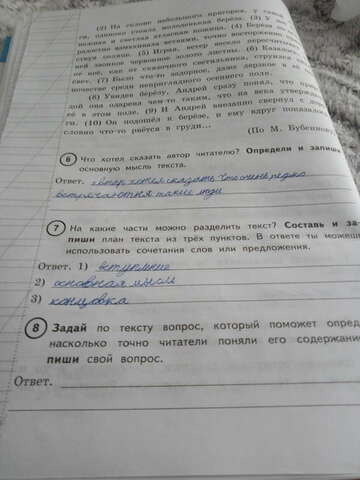 (2) На склоне небольшого пригорка, у самой
ти, одиноко стояла молоденькая берёза. (3) У
нежная и светлая атласная кожица. (4) Берёза
радостно взмахивала ветвями, точно восторженно
ствуя солнце. (5) Играя, ветер весело пересчитывал
ней звонкое червонное золото листвы. (6) Казалось,
от неё, как от сказочного светильника, струился
свет. (7) Было что-то задорное, даже дерзкое в её
ночестве среди неприглядного осеннего поля.
(8) Увидев берёзу, Андрей сразу понял, что
дой она одарена чем-то таким, что на века утвержд
её в этом поле. (9) И Андрей внезапно свернул с дор
ги. (10) Он подошёл к берёзе, и ему вдруг показалось
словно что-то рвётся в груди...
(По М. Бубеннову)
6 Что хотел сказать автор читателю? Определи и запиши
основную мысль текста.
Ответ. автор хотел сказать что очень редко
встречаются такие люди
7 На какие части можно разделить текст? Составь и за-
пиши план текста из трёх пунктов. В ответе ты можешь
использовать сочетания слов или предложения.
Ответ. 1) вступление
2) основная мысль
3) концовка
8 Задай по тексту вопрос, который поможет опред
насколько точно читатели поняли его содержание
пиши свой вопрос.
Ответ.